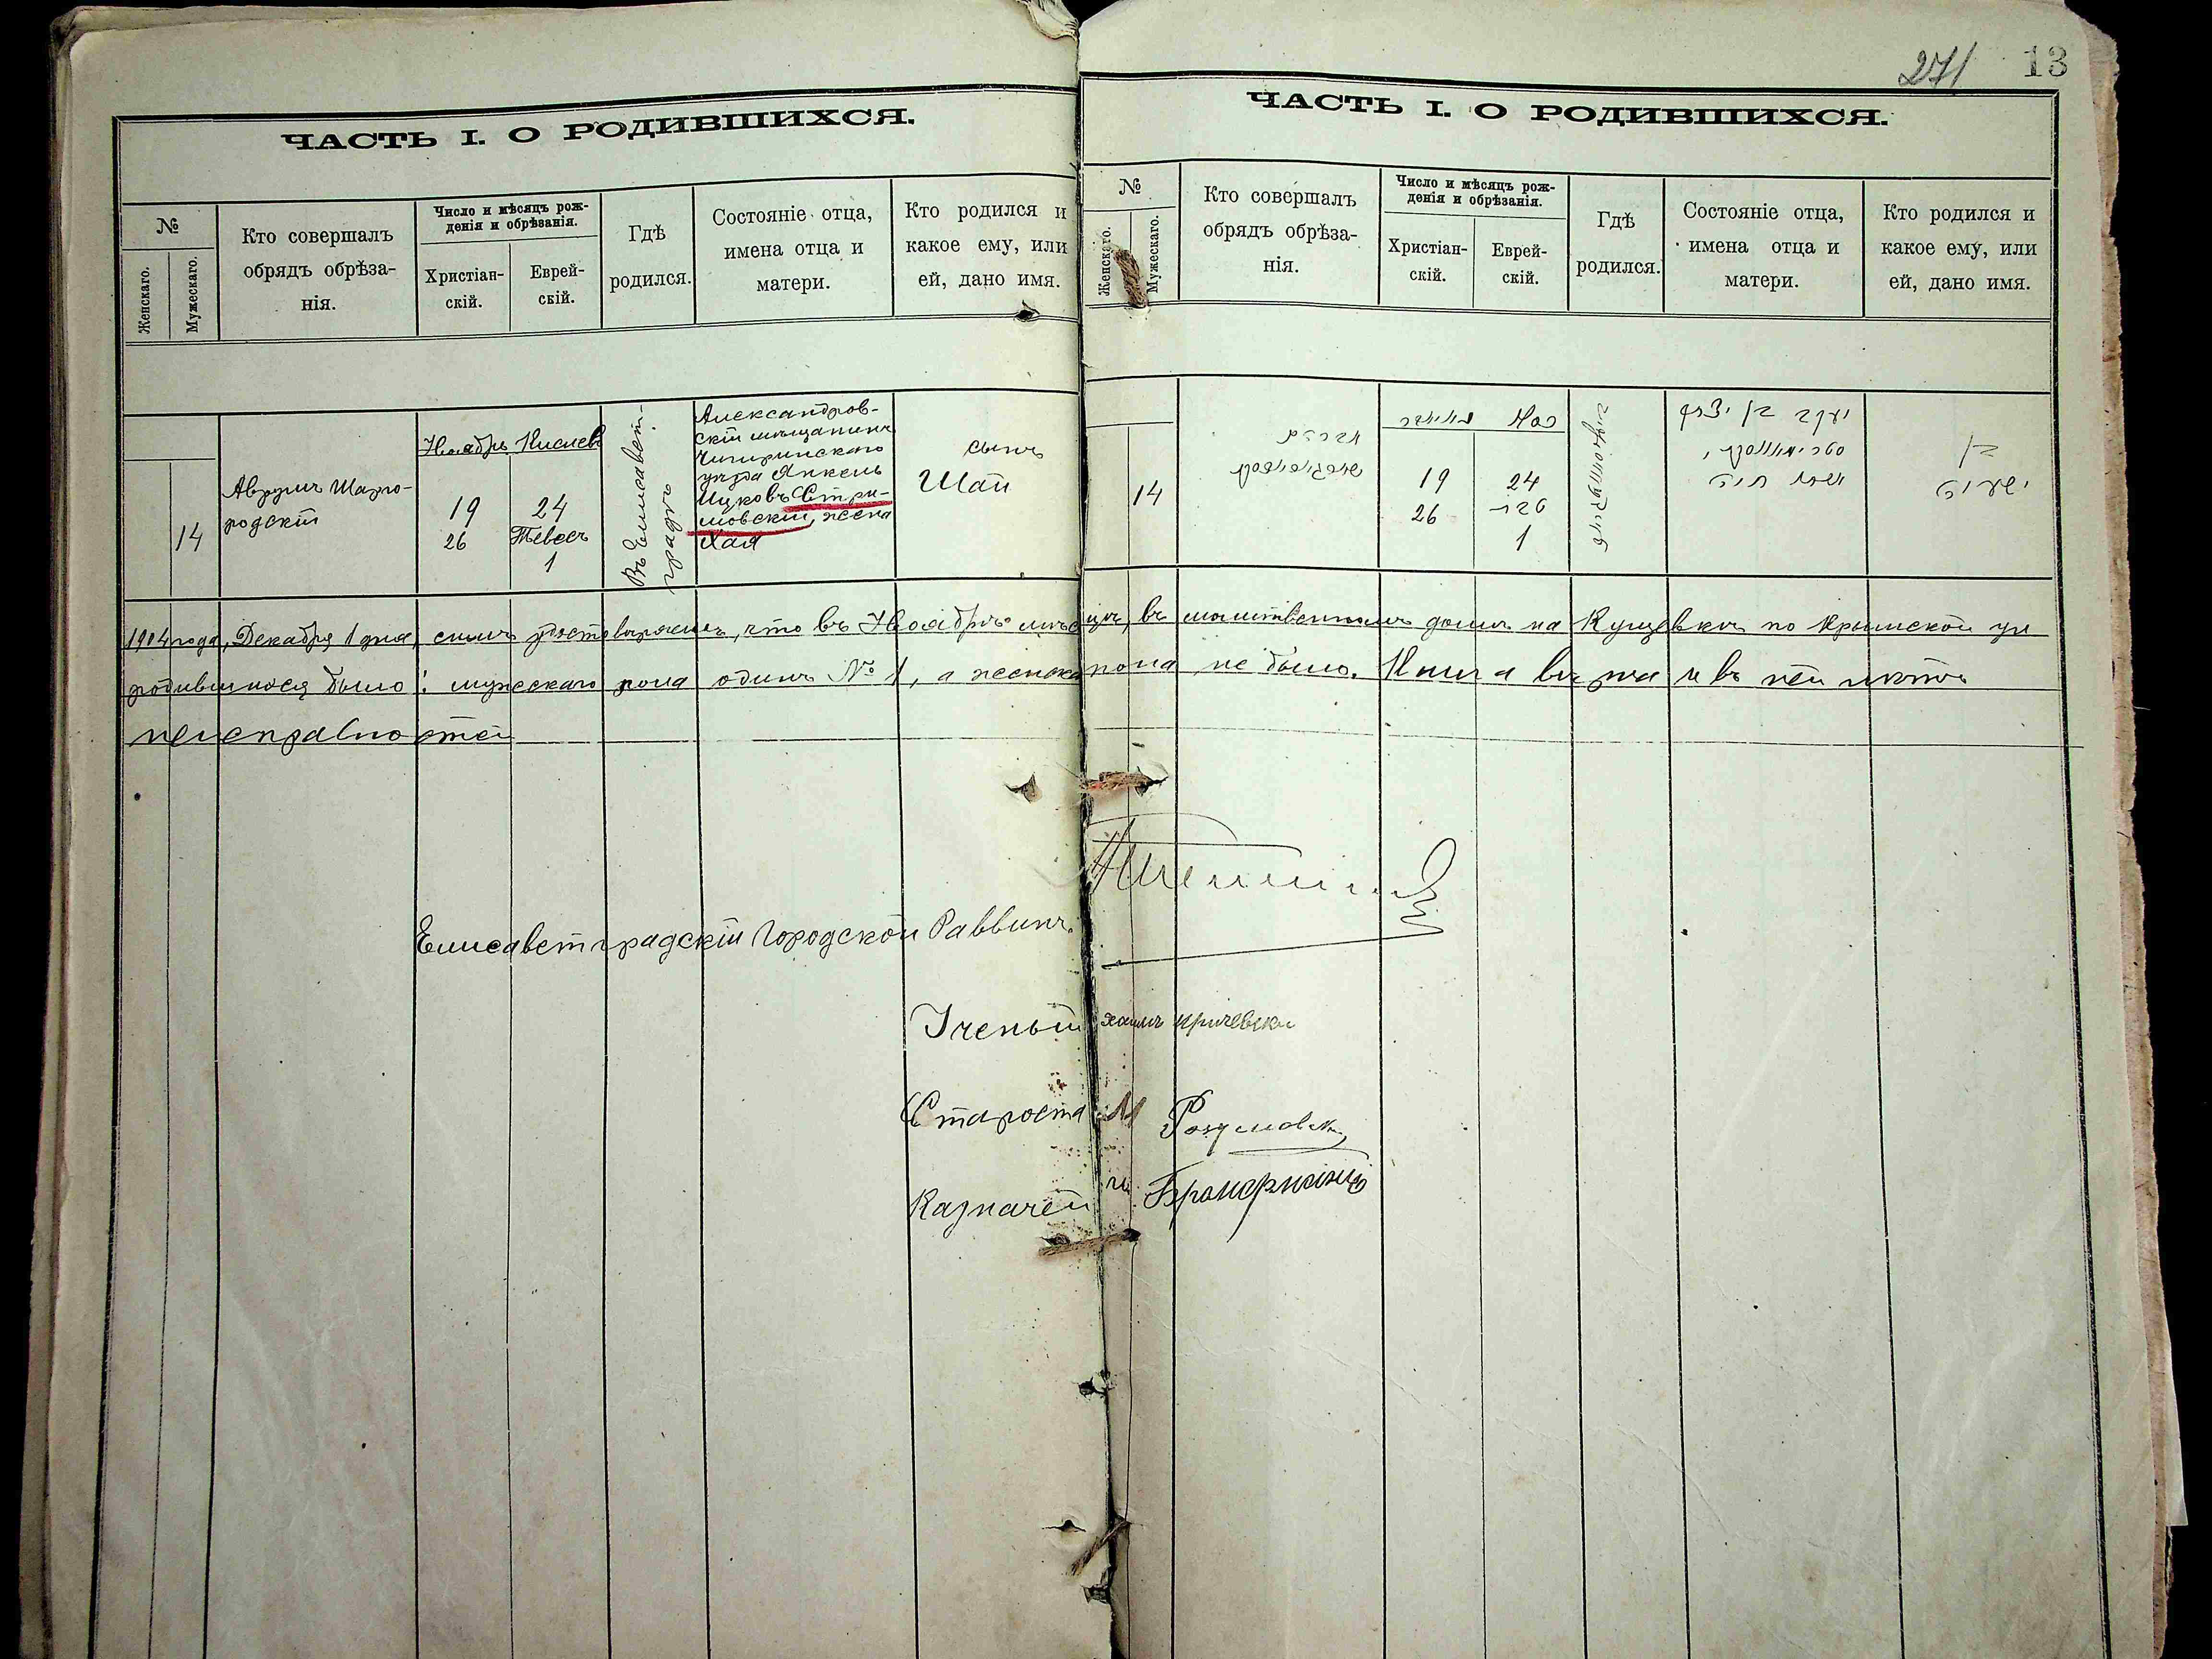 271 13
ЧАСТЬ I. О РОДИВШИХСЯ.
№
Женскаго.
Мужескаго.
Кто совершалъ
обрядъ обрѣза-
нія.
Число и мѣсяцъ рож-
денія и обрѣзанія.
Христіан-
скій.
Еврей-
скій.
Гдѣ
родился.
Состояніе отца,
имена отца и
матери.
Кто родился и
какое ему, или
ей, дано имя.
14
Аврумъ Шарго-
родскій
Ноябрь
19
26
Кислевъ
24
Тевесъ
1
Въ Елисавет-
градѣ
Александров-
скій мѣщанинъ
Чигиринскаго
уѣзда Янкель
Ицковъ Стри-
мовскій, жена
Хая
сынъ
Шая
ЧАСТЬ I. О РОДИВШИХСЯ.
№
Женскаго.
Мужескаго.
Кто совершалъ
обрядъ обрѣза-
нія.
Число и мѣсяцъ рож-
денія и обрѣзанія.
Христіан-
скій.
Еврей-
скій.
Гдѣ
родился.
Состояніе отца,
имена отца и
матери.
Кто родился и
какое ему, или
ей, дано имя.
14
19
26
24
טבת
1
יעקב בן יצחק
חיה
בן
ישעיה
1904 года, Декабря 1 дня, симъ удостовѣряемъ, что въ Ноябрѣ мѣсяцѣ, въ молитвенномъ домѣ на Кущевкѣ по Крымской ул
родившихся было: мужескаго пола одинъ № 1, а женска пола не было. Книга вѣрна и въ ней нѣтъ
неисправностей
Елисаветградскій Городской Раввинъ
Ученый хаимъ Кричевски
Староста М
Казначей